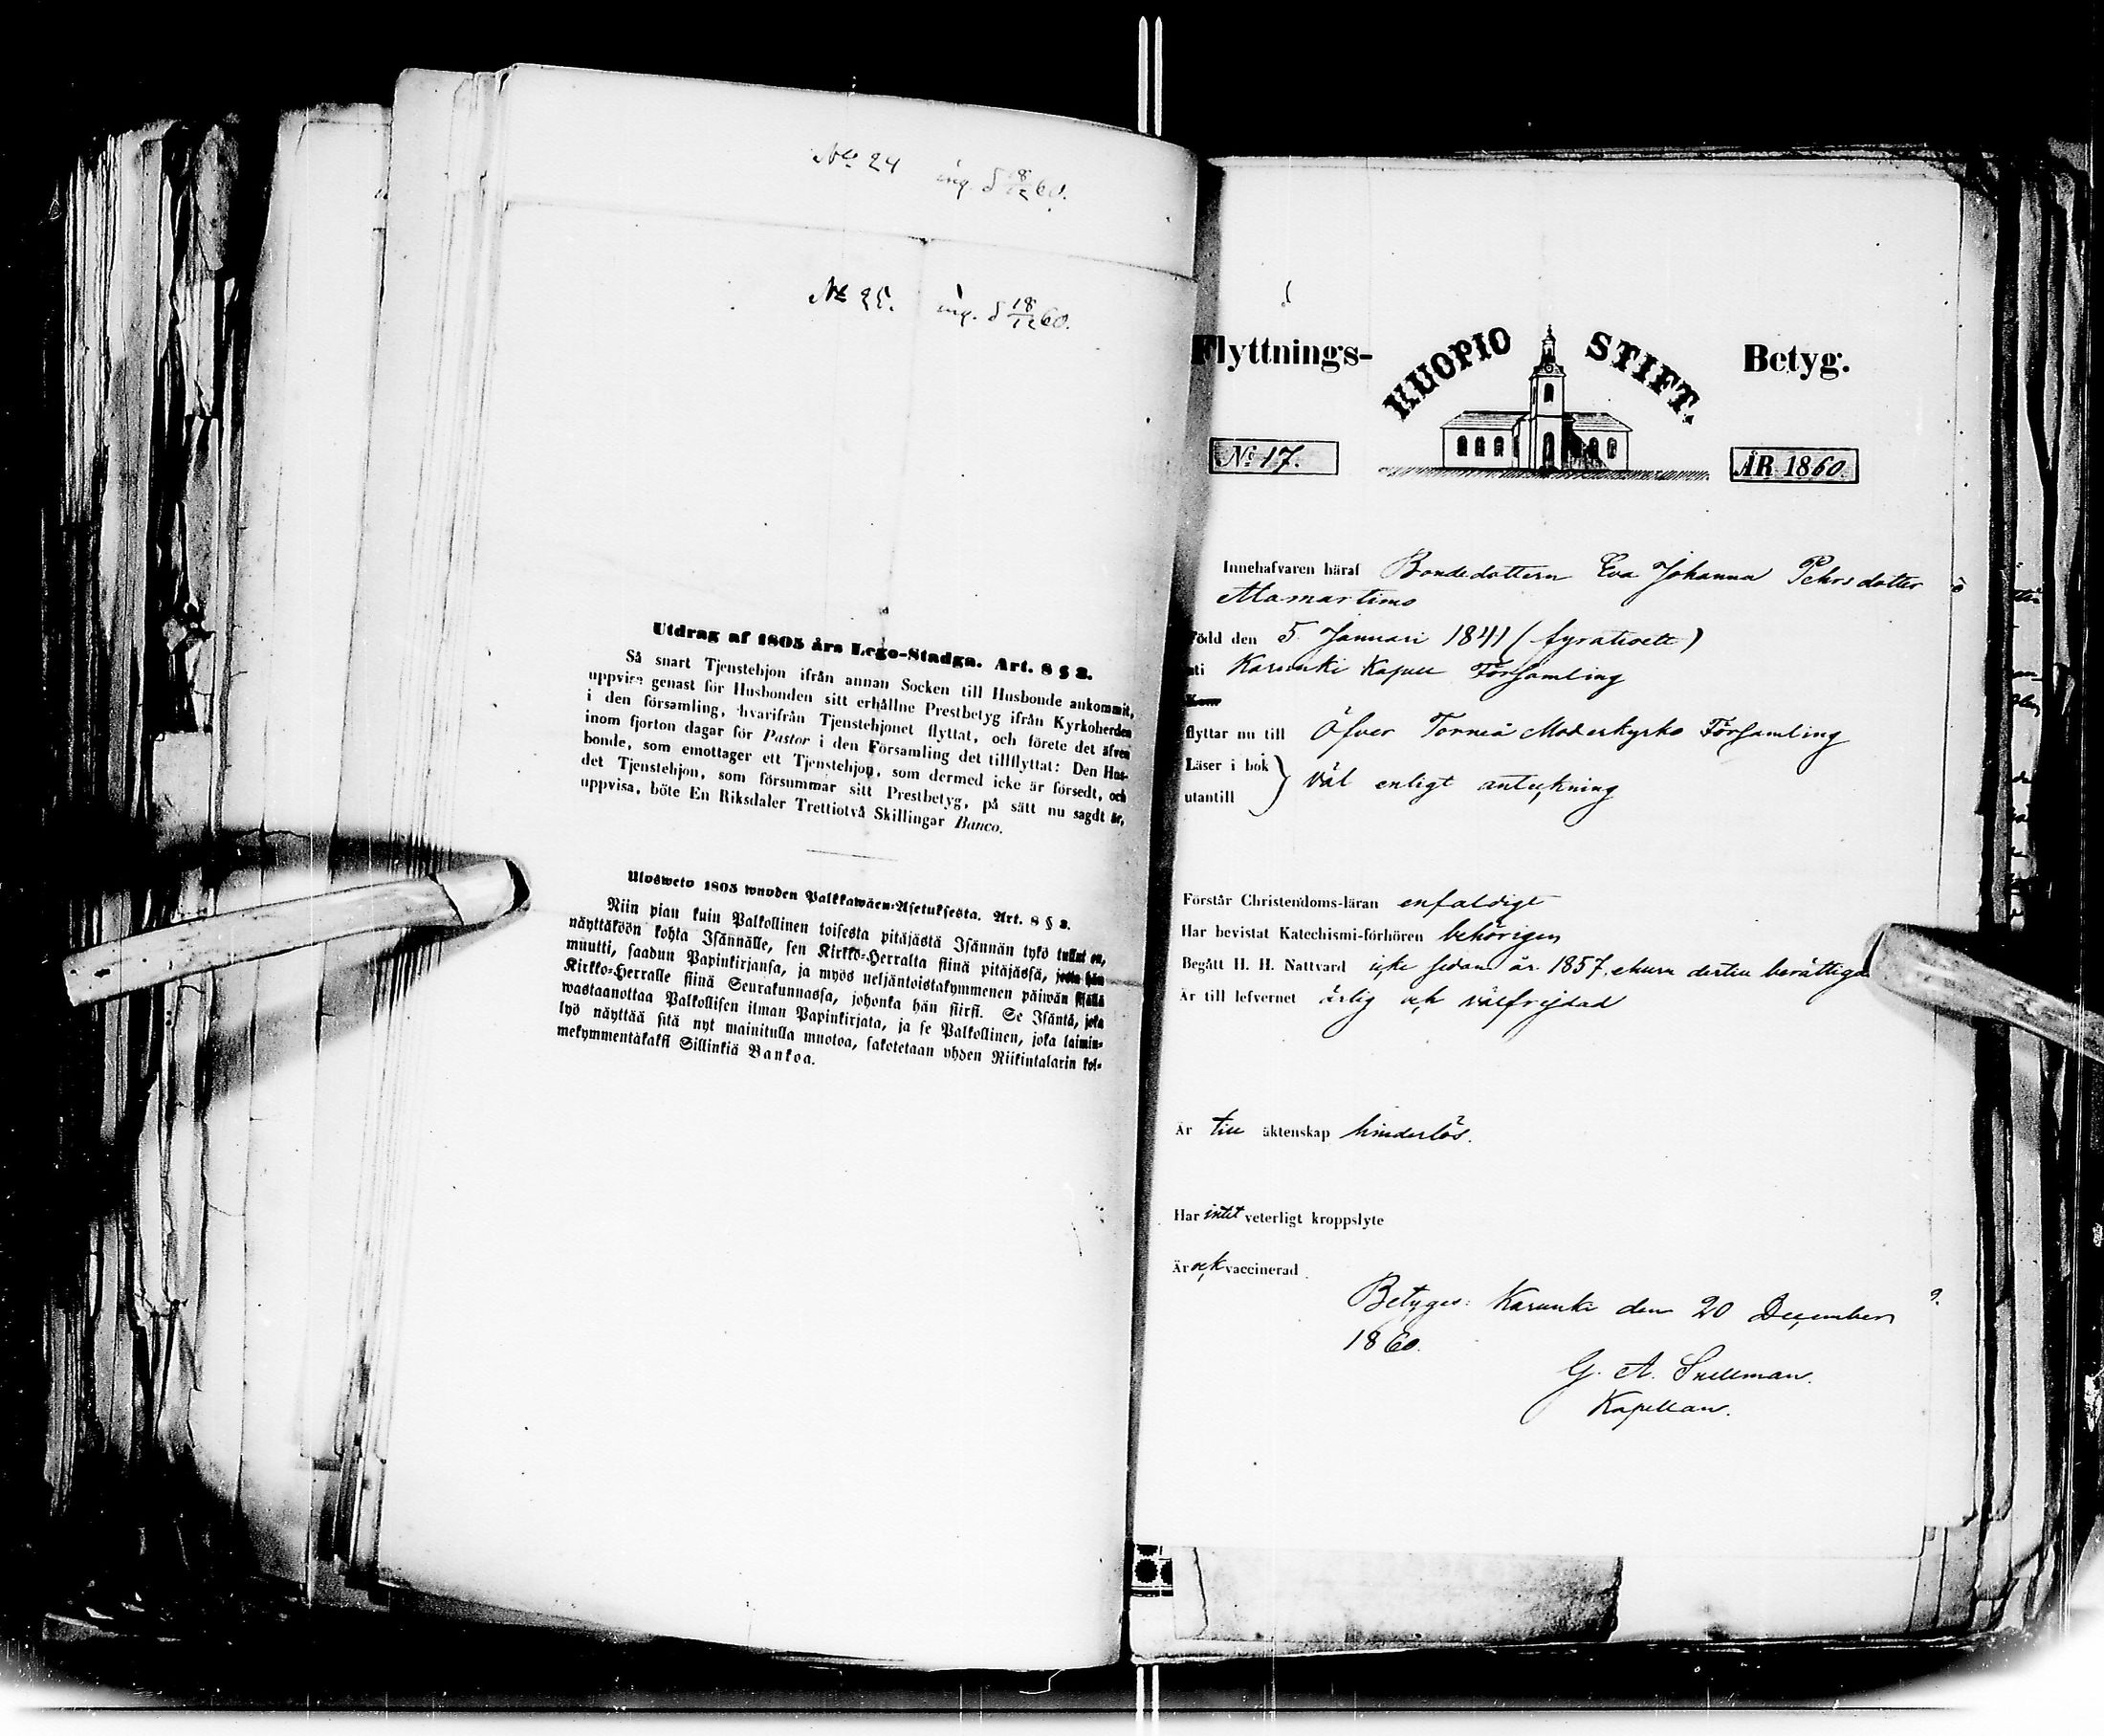 No 24 ing. d 18/12 60.
No 25. ing. d 18/12 60.
Utdrag af 1805 års Lego-Stadga. Art. 8 § 2.
Så snart Tjenstehjon ifrån annan Socken till Husbonde ankommit,
uppvise genast för Husbonden sitt erhållne Prestbetyg ifrån Kyrkoherden
i den församling, hvarifrån Tjenstehjonet flyttat, och förete det äfven
inom fjorton dagar för Pastor i den Församling det tillflyttat: Den Hus-
bonde, som emottager ett Tjenstehjon, som dermed icke är försedt, och
det Tjenstehjon, som försummar sitt Prestbetyg, på sätt nu sagdt är,
uppvisa, böte En Riksdaler Trettiotvå Skillingar Banco.
Ulosweto 1805 wuoden Palkkawäen-Asetuksesta. Art. 8 § 2.
Niin pian kuin Palkollinen toisesta pitäjästä Isännän tykö tullut on,
näyttäköön kohta Isännälle, sen Kirkko-Herralta siinä pitäjässä, josta hän
muutti, saadun Papinkirjansa, ja myös neljäntoistakymmenen päiwän sisällä
Kirkko-Herralle siinä Seurakunnassa, johonka hän siirsi. Se Isäntä, joka
wastaanottaa Palkollisen ilman Papinkirjata, ja se Palkollinen, joka laimin-
lyö näyttää sitä nyt mainitulla muotoa, sakotetaan yhden Riikintalarin kol-
mekymmentäkaksi Sillinkiä Bankoa.
Flyttnings- KUOPIO STIFT. Betyg.
No 17. ÅR 1860.
Innehafvaren häraf Bondedottern Eva Johanna Pehrsdotter
Alamartimo
Född den 5 Januari 1841 (fyrationett)
uti Karunki Kapell Församling
flyttar nu till Öfver Torneå Moderkyrko Församling
Läser i bok } väl enligt anteckning
utantill
Förstår Christendoms-läran enfaldigt
Har bevistat Katechismi-förhören behörigen
Begått H. H. Nattvard icke sedan år 1857, ehuru dertill berättigad
Är till lefvernet ärlig och välfrejdad
Är till äktenskap hinderlös.
Har intet veterligt kroppslyte
Är och vaccinerad
Betygas: Karunki den 20 December
1860.
G. A. Snellman.
Kapellan.